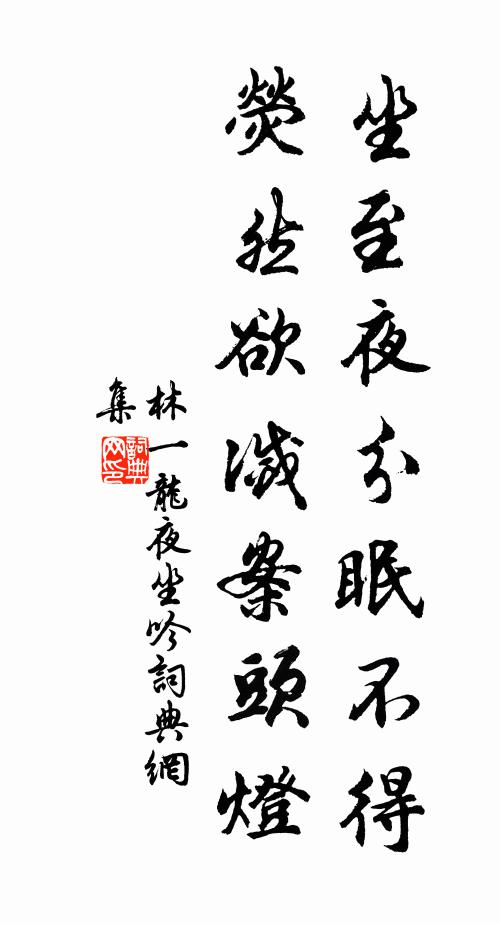 坐至夜分眠不得
熒然欲滅案頭燈
林一龍夜坐吟詞典網
集
詞典
网印